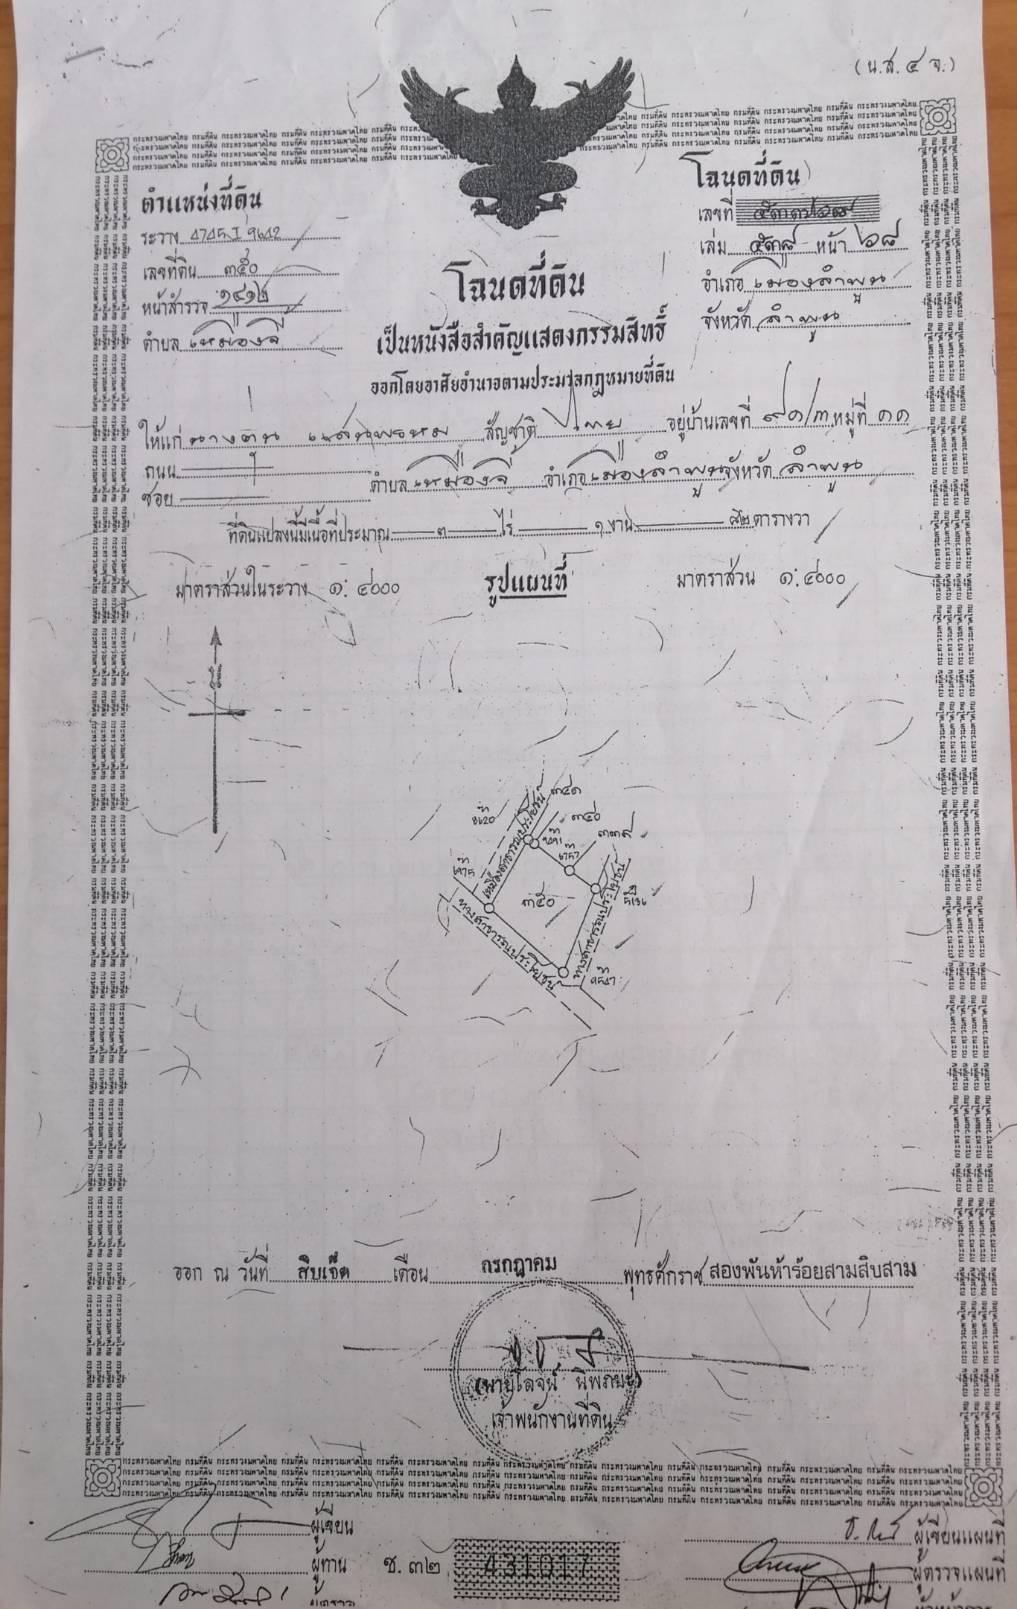 (น.ส.๔ จ.)
ตำแหน่งที่ดิน
ระวาง 4745 I 9642
เลขที่ดิน ๓๕๐
หน้าสำรวจ ๑๔๑๒
ตำบล เหมืองจี้
โฉนดที่ดิน
เลขที่
เล่ม หน้า ๖๘
อำเภอ เมืองลำพูน
จังหวัด ลำพูน
โฉนดที่ดิน
เป็นหนังสือสำคัญแสดงกรรมสิทธิ์
ออกโดยอาศัยอำนาจตามประมวลกฎหมายที่ดิน
ให้แก่ นาง สัญชาติ ไทย อยู่บ้านเลขที่ ๙๑/๓ หมู่ที่ ๑๑
ถนน
ซอย ตำบล เหมืองจี้ อำเภอ เมืองลำพูน จังหวัด ลำพูน
ที่ดินแปลงนี้มีเนื้อที่ประมาณ ๓ ไร่ ๑ งาน ๘๒ ตารางวา
มาตราส่วนในระวาง ๑:๔๐๐๐ รูปแผนที่ มาตราส่วน ๑:๔๐๐๐
๓๔๑
๓๔๐
๓๓๙
๓๕๐
เหมืองสาธารณประโยชน์
ทางสาธารณประโยชน์
ทางสาธารณประโยชน์
ออก ณ วันที่ สิบเจ็ด เดือน กรกฎาคม พุทธศักราช สองพันห้าร้อยสามสิบสาม
เจ้าพนักงานที่ดิน
ผู้เขียน
ผู้ทาน
ช.๓๒ 431017
ผู้เขียนแผนที่
ผู้ตรวจแผนที่